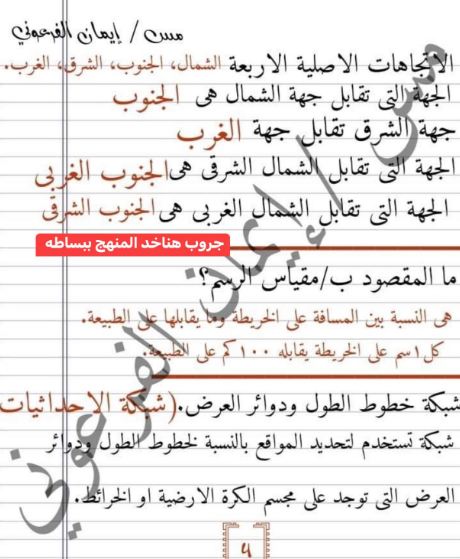 مس / إيمان الفرعوني
الاتجاهات الاصلية الاربعة الشمال، الجنوب، الشرق، الغرب.
الجهة التى تقابل جهة الشمال هى الجنوب
جهة الشرق تقابل جهة الغرب
الجهة التى تقابل الشمال الشرقى هى الجنوب الغربى
الجهة التى تقابل الشمال الغربى هى الجنوب الشرقى
جروب هناخد المنهج ببساطه
ما المقصود ب/مقياس الرسم؟
هى النسبة بين المسافة على الخريطة وما يقابلها على الطبيعة.
كل ١سم على الخريطة يقابله ١٠٠كم على الطبيعة.
شبكة خطوط الطول ودوائر العرض.(شبكة الاحداثيات
شبكة تستخدم لتحديد المواقع بالنسبة لخطوط الطول ودوائر
العرض التى توجد على مجسم الكرة الارضية او الخرائط.
٤
مس / إيمان الفرعوني